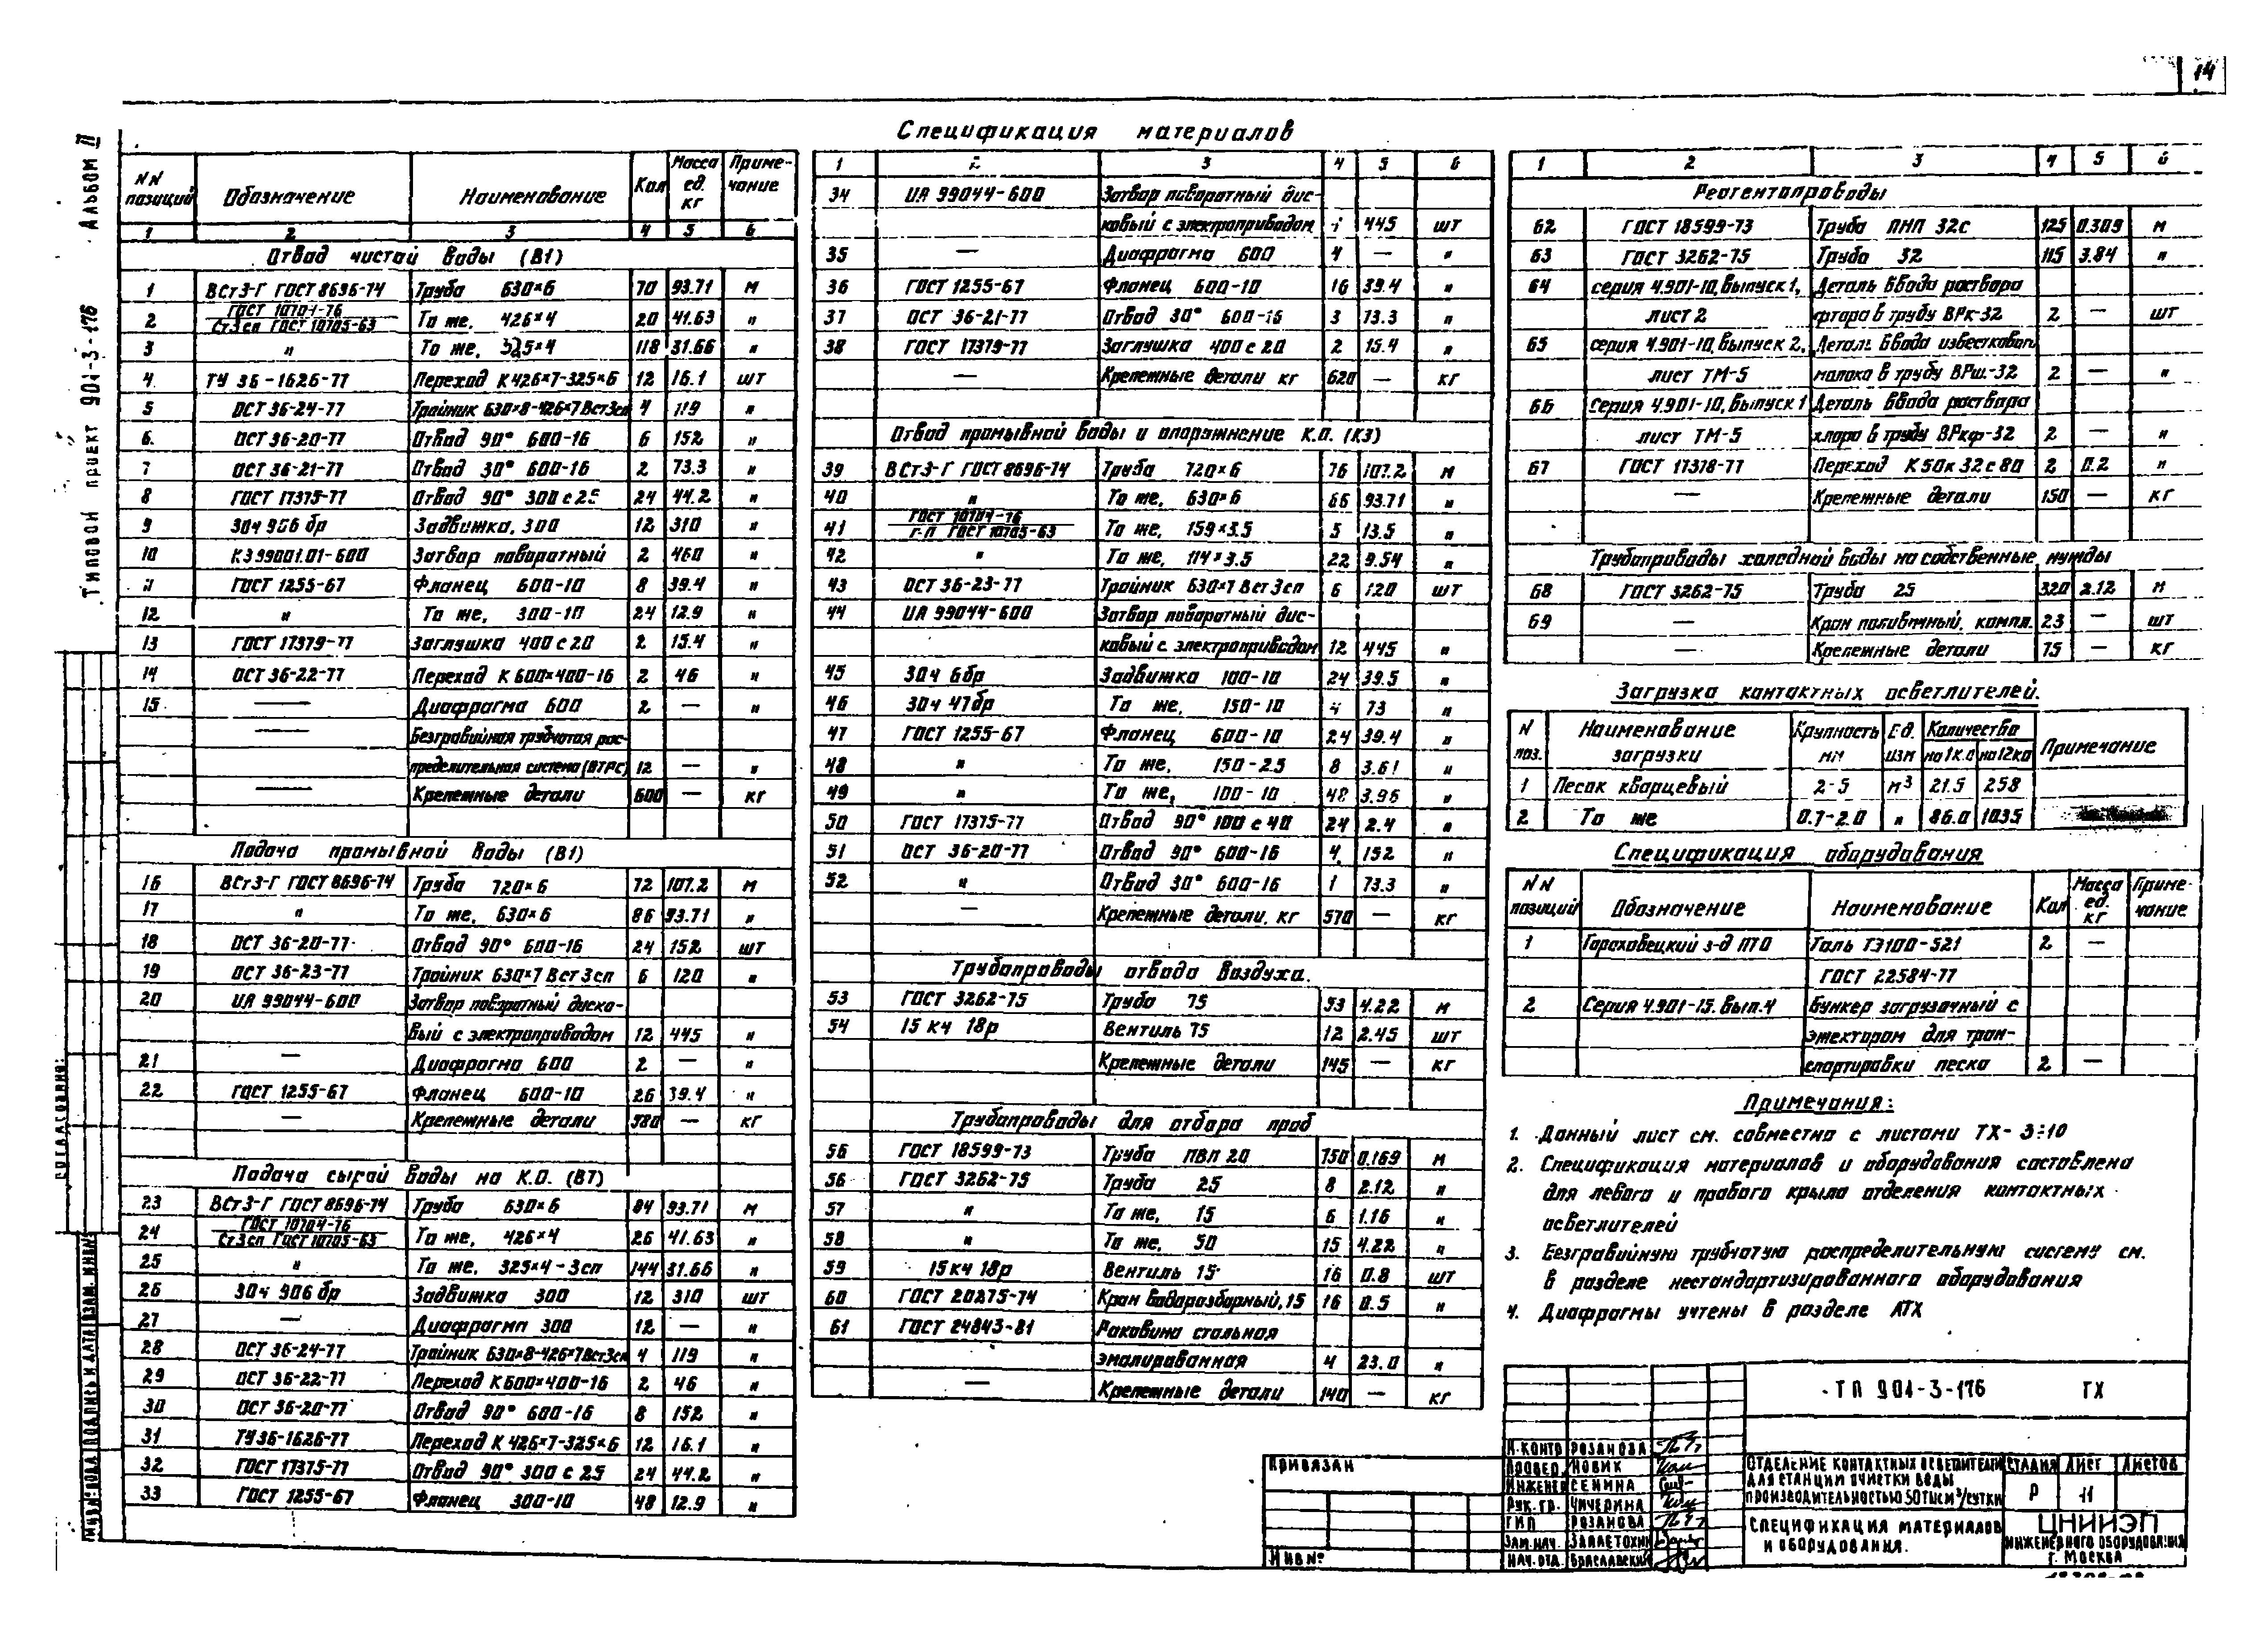 14
Альбом II
Типовой проект 901-3-176
Спецификация материалов
NN позиций Обозначение Наименование Кол Масса ед. кг Приме-чание
1 2 3 4 5 6
Отвод чистой воды (В1)
1 ВСт3-Г ГОСТ 8696-74 Труба 630×6 70 93.71 м
2 ГОСТ 10704-76 / Ст.3сп ГОСТ 10705-63 То же, 426×4 20 41.63 "
3 " То же, 325×4 118 31.66 "
4 ТУ 36-1626-77 Переход К 426×7-325×6 12 16.1 шт
5 ОСТ 36-24-77 Тройник 630×8-426×7 Вст3сп 4 119 "
6. ОСТ 36-20-77 Отвод 90° 600-16 6 152 "
7 ОСТ 36-21-77 Отвод 30° 600-16 2 73.3 "
8 ГОСТ 17375-77 Отвод 90° 300 с 25 24 44.2 "
9 30ч 906 бр Задвижка, 300 12 310 "
10 КЗ 99001.01-600 Затвор поворотный 2 460 "
11 ГОСТ 1255-67 Фланец 600-10 8 39.4 "
12 " То же, 300-10 24 12.9 "
13 ГОСТ 17379-77 Заглушка 400 с 20 2 15.4 "
14 ОСТ 36-22-77 Переход К 600×400-16 2 46 "
15 — Диафрагма 600 2 — "
— Безгравийная трубчатая рас-
пределительная система (БТРС) 12 — "
— Крепежные детали 600 — кг
Подача промывной воды (В1)
16 ВСт3-Г ГОСТ 8696-74 Труба 720×6 72 107.2 м
17 " То же, 630×6 86 93.71 "
18 ОСТ 36-20-77 Отвод 90° 600-16 24 152 шт
19 ОСТ 36-23-77 Тройник 630×7 Вст 3сп 6 120 "
20 ИА 99044-600 Затвор поворотный диско-
вый с электроприводом 12 445 "
21 — Диафрагма 600 2 — "
22 ГОСТ 1255-67 Фланец 600-10 26 39.4 "
— Крепежные детали 580 — кг
Подача сырой воды на К.О. (В7)
23 ВСт3-Г ГОСТ 8696-74 Труба 630×6 84 93.71 м
24 ГОСТ 10704-76 / Ст.3сп ГОСТ 10705-63 То же, 426×4 26 41.63 "
25 " То же, 325×4-3сп 144 31.66 "
26 30ч 906 бр Задвижка 300 12 310 шт
27 — Диафрагма 300 12 — "
28 ОСТ 36-24-77 Тройник 630×8-426×7 Вст3сп 4 119 "
29 ОСТ 36-22-77 Переход К 600×400-16 2 46 "
30 ОСТ 36-20-77 Отвод 90° 600-16 8 152 "
31 ТУ 36-1626-77 Переход К 426×7-325×6 12 16.1 "
32 ГОСТ 17375-77 Отвод 90° 300 с 25 24 44.2 "
33 ГОСТ 1255-67 Фланец 300-10 48 12.9 "
1 2 3 4 5 6
34 ИА 99044-600 Затвор поворотный дис-
ковый с электроприводом 445 шт
35 — Диафрагма 600 4 — "
36 ГОСТ 1255-67 Фланец 600-10 16 39.4 "
37 ОСТ 36-21-77 Отвод 30° 600-16 3 73.3 "
38 ГОСТ 17379-77 Заглушка 400 с 20 2 15.4 "
— Крепежные детали кг 620 — кг
Отвод промывной воды и опорожнение К.О. (К3)
39 ВСт3-Г ГОСТ 8696-74 Труба 720×6 76 107.2 м
40 " То же, 630×6 66 93.71 "
41 ГОСТ 10704-76 / г-п ГОСТ 10705-63 То же, 159×3.5 5 13.5 "
42 " То же, 114×3.5 22 9.54 "
43 ОСТ 36-23-77 Тройник 630×7 Вст 3сп 6 120 шт
44 ИА 99044-600 Затвор поворотный дис-
ковый с электроприводом 12 445 "
45 30ч 6бр Задвижка 100-10 24 39.5 "
46 30ч 47бр То же, 150-10 4 73 "
47 ГОСТ 1255-67 Фланец 600-10 24 39.4 "
48 " То же, 150-2.5 8 3.61 "
49 " То же, 100-10 48 3.96 "
50 ГОСТ 17375-77 Отвод 90° 100 с 40 24 2.4 "
51 ОСТ 36-20-77 Отвод 90° 600-16 4 152 "
52 " Отвод 30° 600-16 1 73.3 "
— Крепежные детали, кг 570 — кг
Трубопроводы отвода воздуха.
53 ГОСТ 3262-75 Труба 75 53 4.22 м
54 15 кч 18р Вентиль 75 12 2.45 шт
Крепежные детали 145 — кг
Трубопроводы для отбора проб
56 ГОСТ 18599-73 Труба ПВП 20 150 0.169 м
56 ГОСТ 3262-75 Труба 25 8 2.12 "
57 " То же, 15 6 1.16 "
58 " То же, 50 15 4.22 "
59 15кч 18р Вентиль 15 16 0.8 шт
60 ГОСТ 20275-74 Кран водоразборный, 15 16 0.5 "
61 ГОСТ 24843-81 Раковина стальная
эмалированная 4 23.0 "
— Крепежные детали 140 — кг
1 2 3 4 5 6
Реагентопроводы
62 ГОСТ 18599-73 Труба ПНП 32С 125 0.309 м
63 ГОСТ 3262-75 Труба 32 115 3.84 "
64 серия 4.901-10, выпуск 1, Деталь ввода раствора
лист 2 фтора в трубу ВРк-32 2 — шт
65 серия 4.901-10, выпуск 2, Деталь ввода известковог
лист ТМ-5 молока в трубу ВРш-32 2 — "
66 серия 4.901-10, выпуск 1 Деталь ввода раствора
лист ТМ-5 хлора в трубу ВРкф-32 2 — "
67 ГОСТ 17378-77 Переход К 50к 32 с 80 2 0.2 "
— Крепежные детали 150 — кг
Трубопроводы холодной воды на собственные нужды
68 ГОСТ 3262-75 Труба 25 320 2.12 м
69 — Кран поливочный, компл. 23 — шт
— Крепежные детали 75 — кг
Загрузка контактных осветлителей.
N поз. Наименование загрузки Крупность мм Ед. изм Количество на 1 к.о на 12 ко Примечание
1 Песок кварцевый 2-5 м³ 21.5 258
2 То же 0.7-2.0 " 86.0 1035
Спецификация оборудования
NN позиций Обозначение Наименование Кол Масса ед. кг Приме-чание
1 Гороховецкий з-д ПТО Таль ТЭ100-521 2 —
ГОСТ 22584-77
2 Серия 4.901-15. Вып.4 Бункер загрузочный с
эжектором для тран-
спортировки песка 2 —
Примечания:
1. Данный лист см. совместно с листами ТХ-3÷10
2. Спецификация материалов и оборудования составлена
для левого и правого крыла отделения контактных
осветлителей
3. Безгравийную трубчатую распределительную систему см.
в разделе нестандартизированного оборудования
4. Диафрагмы учтены в разделе АТХ
ТП 901-3-176 ТХ
Привязан
Инв№
Н.контр Розанова
Провер. Новик
Инженер Сенина
Рук. гр. Чичерина
ГИП Розанова
Зам.нач.
Нач.отд. Браславский
Отделение контактных осветлителей
для станции очистки воды
производительностью 50 тыс м³/сутки
Стадия Лист Листов
Р 11
Спецификация материалов
и оборудования.
ЦНИИЭП
инженерного оборудования
г. Москва
Согласовано:
Инв.№ подл. Подпись и дата Взам. инв.№